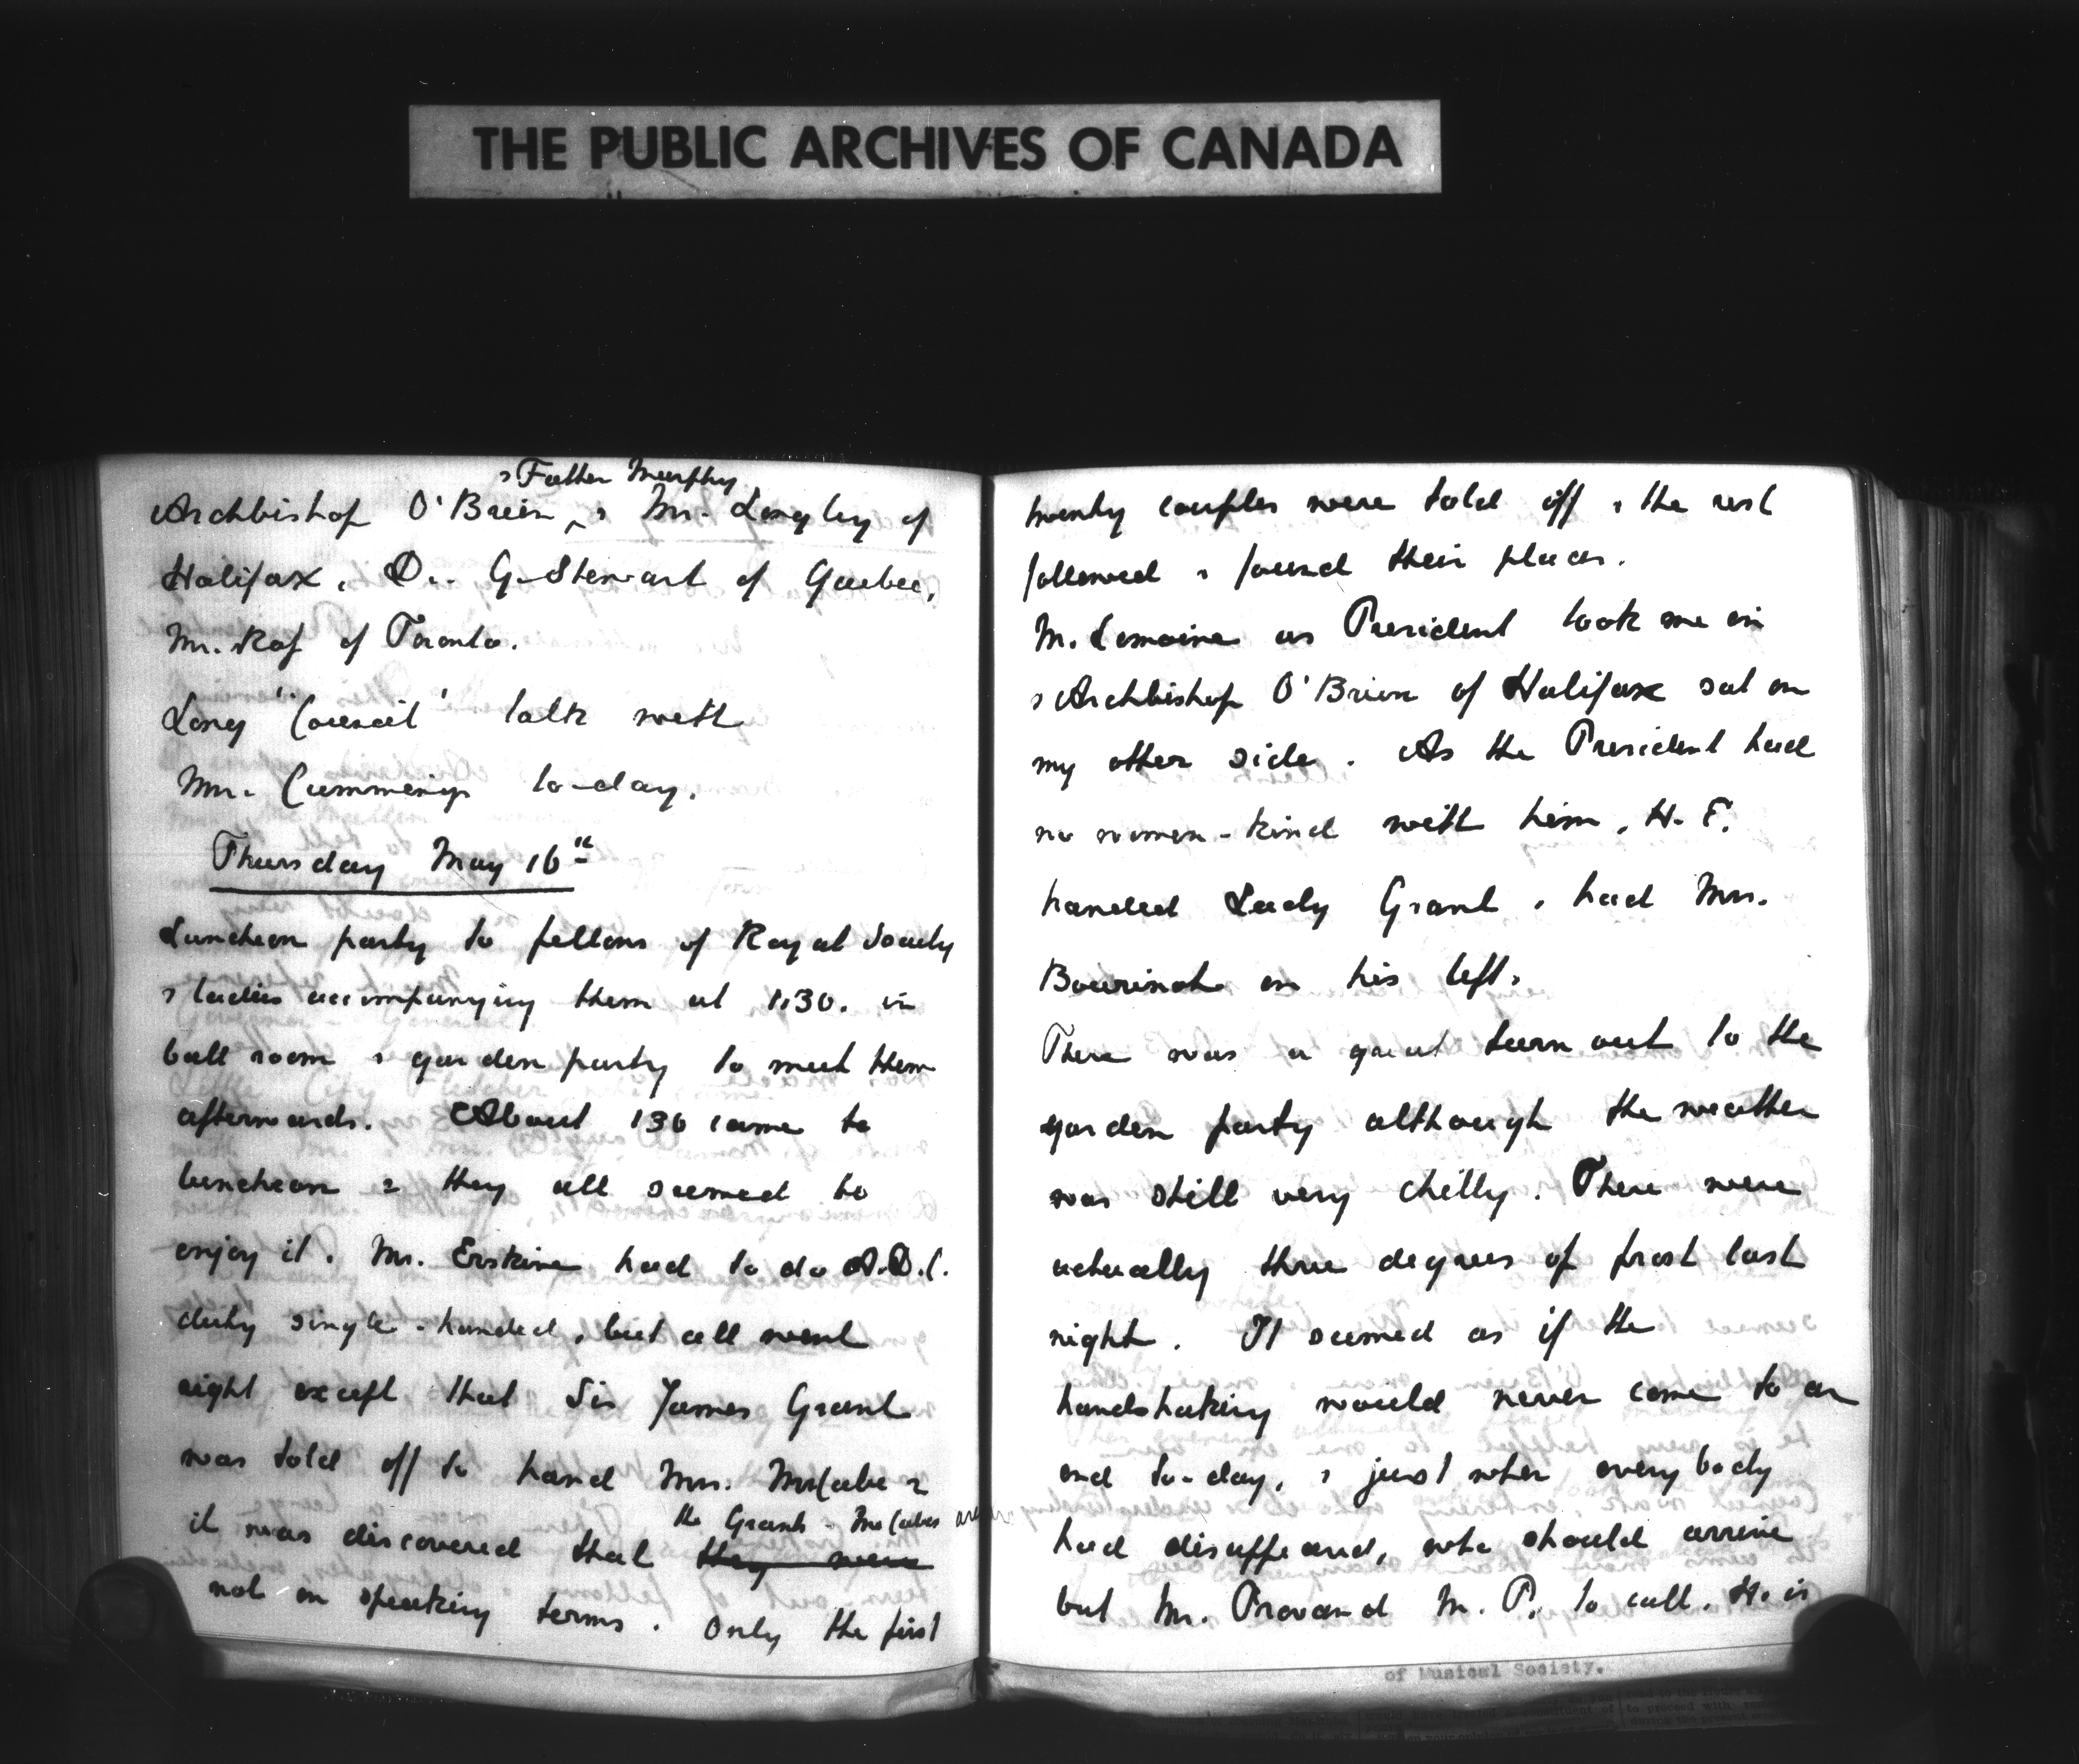 THE PUBLIC ARCHIVES OF CANADA
& Father Murphy
Archbishop O'Brien & Mr. Longley of
Halifax, Dr. G. Stewart of Quebec,
Mr. of Toronto.
Long "Council" talk with
Mrs. Cummings to-day.
Thursday May 16th
Luncheon party to fellows of Royal Society
& ladies accompanying them at 1.30. in
ball room & garden party to meet them
afterwards. About 130 came to
luncheon & they all seemed to
enjoy it. Mr. Erskine had to do A.D.C.
duty single-handed, but all went
right except that Sir James Grant
was told off to hand Mrs. McCabe &
the Grants - McCabes are
it was discovered that they were
not on speaking terms. Only the first
twenty couples were told off & the rest
followed & found their places.
M. Lemoine as President took me in
& Archbishop O'Brien of Halifax sat on
my other side. As the President had
no women-kind with him, H.E.
handed Lady Grant & had Mrs.
Bourinot on his left.
There was a great turn out to the
garden party although the weather
was still very chilly. There were
actually three degrees of frost last
night. It seemed as if the
handshaking would never come to an
end to-day, & just when everybody
had disappeared, who should arrive
but Mr. Provand M.P. to call. He is
of Musical Society.